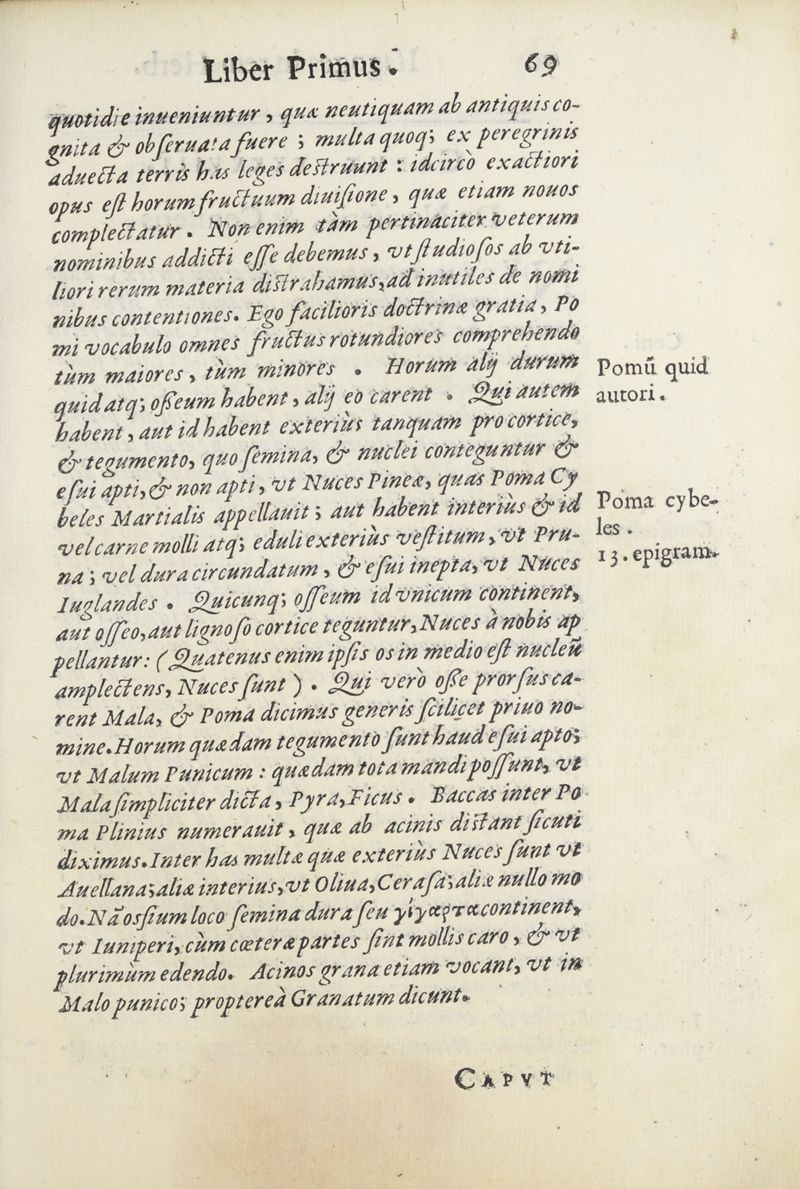 Liber Primus. 69
quotidie inueniuntur, quæ neutiquam ab antiquis co-
gnita & obſeruata fuere ; multa quoq; ex peregrinis
aduecta terris has leges deſtruunt : idcirco exactiori
opus eſt horum fructuum diuiſione, quæ etiam nouos
complectatur. Non enim tàm pertinaciter veterum
nominibus addicti eſſe debemus, vt ſtudioſos ab vti-
liori rerum materia diſtrahamus, ad inutiles de nomi
nibus contentiones. Ego facilioris doctrinæ gratia, Po
mi vocabulo omnes fructus rotundiores comprehendo
tùm maiores, tùm minores . Horum alij durum
quid atq; oſſeum habent, alij eo carent . Qui autem
habent, aut id habent exteriùs tanquam pro cortice,
& tegumento, quo ſemina, & nuclei conteguntur &
eſui apti, & non apti, vt Nuces Pineæ, quas Poma Cy
beles Martialis appellauit ; aut habent interiùs & id
vel carne molli atq; eduli exteriùs veſtitum, vt Pru-
na ; vel dura circundatum, & eſui inepta, vt Nuces
Iuglandes . Quicunq; oſſeum id vnicum continent,
aut oſſeo, aut lignoſo cortice teguntur, Nuces à nobis ap
pellantur: (Quatenus enim ipſis os in medio eſt nucleũ
amplectens, Nuces ſunt ) . Qui verò oſſe prorſus ca-
rent Mala, & Poma dicimus generis ſcilicet priuo no-
mine. Horum quædam tegumento ſunt haud eſui apto;
vt Malum Punicum : quædam tota mandi poſſunt, vt
Mala ſimpliciter dicta, Pyra, Ficus . Baccas inter Po
ma Plinius numerauit, quæ ab acinis diſtant ſicuti
diximus. Inter has multæ quæ exteriùs Nuces ſunt vt
Auellana; aliæ interiùs, vt Oliua, Ceraſa; aliæ nullo mo
do. Nã oſſium loco ſemina dura ſeu γίγαρτα continent,
vt Iuniperi, cùm cœteræ partes ſint mollis caro, & vt
plurimùm edendo. Acinos grana etiam vocant, vt in
Malo punico; propterea Granatum dicunt.
Pomũ quid
autori.
Poma cybe-
les .
13. epigram.
CAPVT